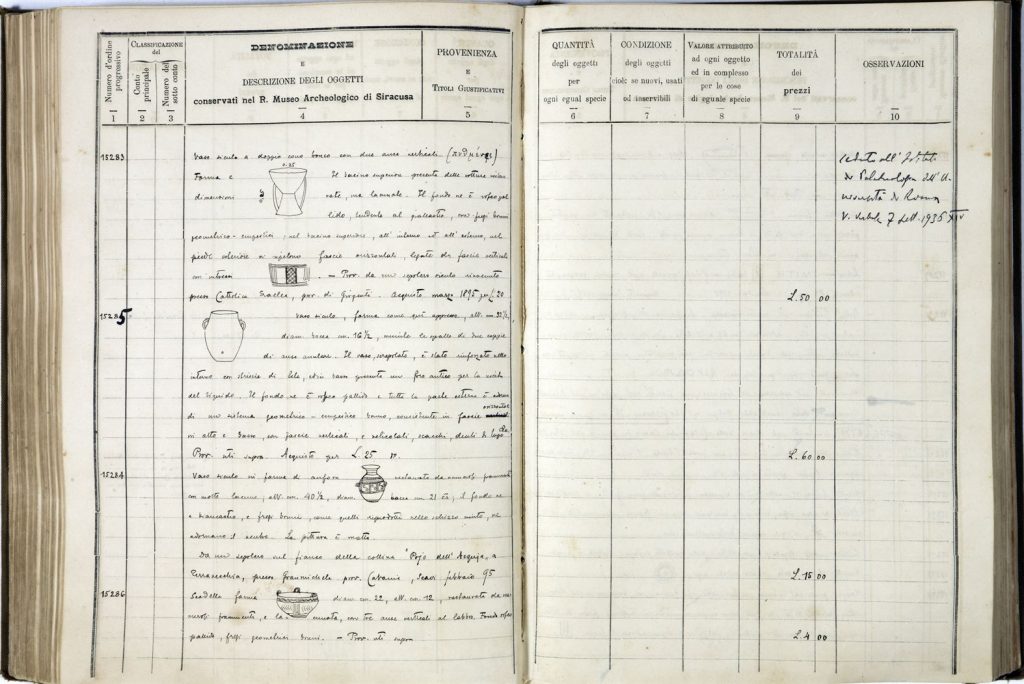 Numero d'ordine progressivo
1
CLASSIFICAZIONE
del
Conto principale
2
Numero del sotto conto
3
DENOMINAZIONE
E
DESCRIZIONE DEGLI OGGETTI
conservati nel R. Museo Archeologico di Siracusa
4
PROVENIENZA
E
TITOLI GIUSTIFICATIVI
5
15283
Vaso siculo a doppio cono tronco con due anse verticali
0.25
Forma e
Il bacino superiore presenta delle rotture
dimensioni
ma lacunale. Il fondo ne è roseo pal
lido, tendente al giallastro, con fregi bruni
geometrico-empestici; nel bacino superiore, all'interno ed all'esterno, nel
piede inferiore si ripetono fascie orizzontali, legate da fascie verticali
con intreccio
— Prov. da un sepolcro siculo rinvenuto
presso Cattolica Eraclea, prov. di Girgenti. Acquisto marzo 1895 per L. 20
15285
Vaso siculo, forma come qui appresso, alt. cm. 32½,
diam. bocca cm. 16½, munito le spalle di due coppie
di anse anulari. Il vaso, screpolato, è stato rinforzato nello
interno con striscie di tela, ed in basso presenta un foro antico per la uscita
del liquido. Il fondo ne è roseo pallido e tutta la parte esterna è adorna
di un sistema geometrico-empestico bruno, consistente in fascie orizzontali
in alto e basso, con fascie verticali, e reticolati, scacchi, denti di lupo &
Prov. uti supra. Acquisto per L. 25
15284
Vaso siculo in forma di anfora
restaurato da numerosi frammenti
con molte lacune, alt. cm. 40½, diam. bocca cm 21, il fondo ne
è biancastro, e fregi bruni, come quelli riprodotti nello schizzo unito, ne
adornano il ventre. La pittura è matta
Da un sepolcro sul fianco della collina "Pojo dell'Acquja, a
Terravecchia, presso Grammichele prov. Catania, Scavi febbraio 95
15286
Scodella forma
diam. cm. 22, alt. cm. 12, restaurata da nu
merosi frammenti, e la
con tre anse verticali al labbro. Fondo roseo
pallido, fregi geometrici bruni. — Prov. uti supra
QUANTITÀ
degli oggetti
per
ogni egual specie
6
CONDIZIONE
degli oggetti
cioè: se nuovi, usati
od inservibili
7
VALORE ATTRIBUITO
ad ogni oggetto
ed in complesso
per le cose
di eguale specie
8
TOTALITÀ
dei
prezzi
9
OSSERVAZIONI
10
Ceduto all'Istituto
di Paletnologia dell'U-
niversità di Roma
7 Sett. 1936 XIV
L. 50 00
L. 60 00
L. 15 00
L. 4 00